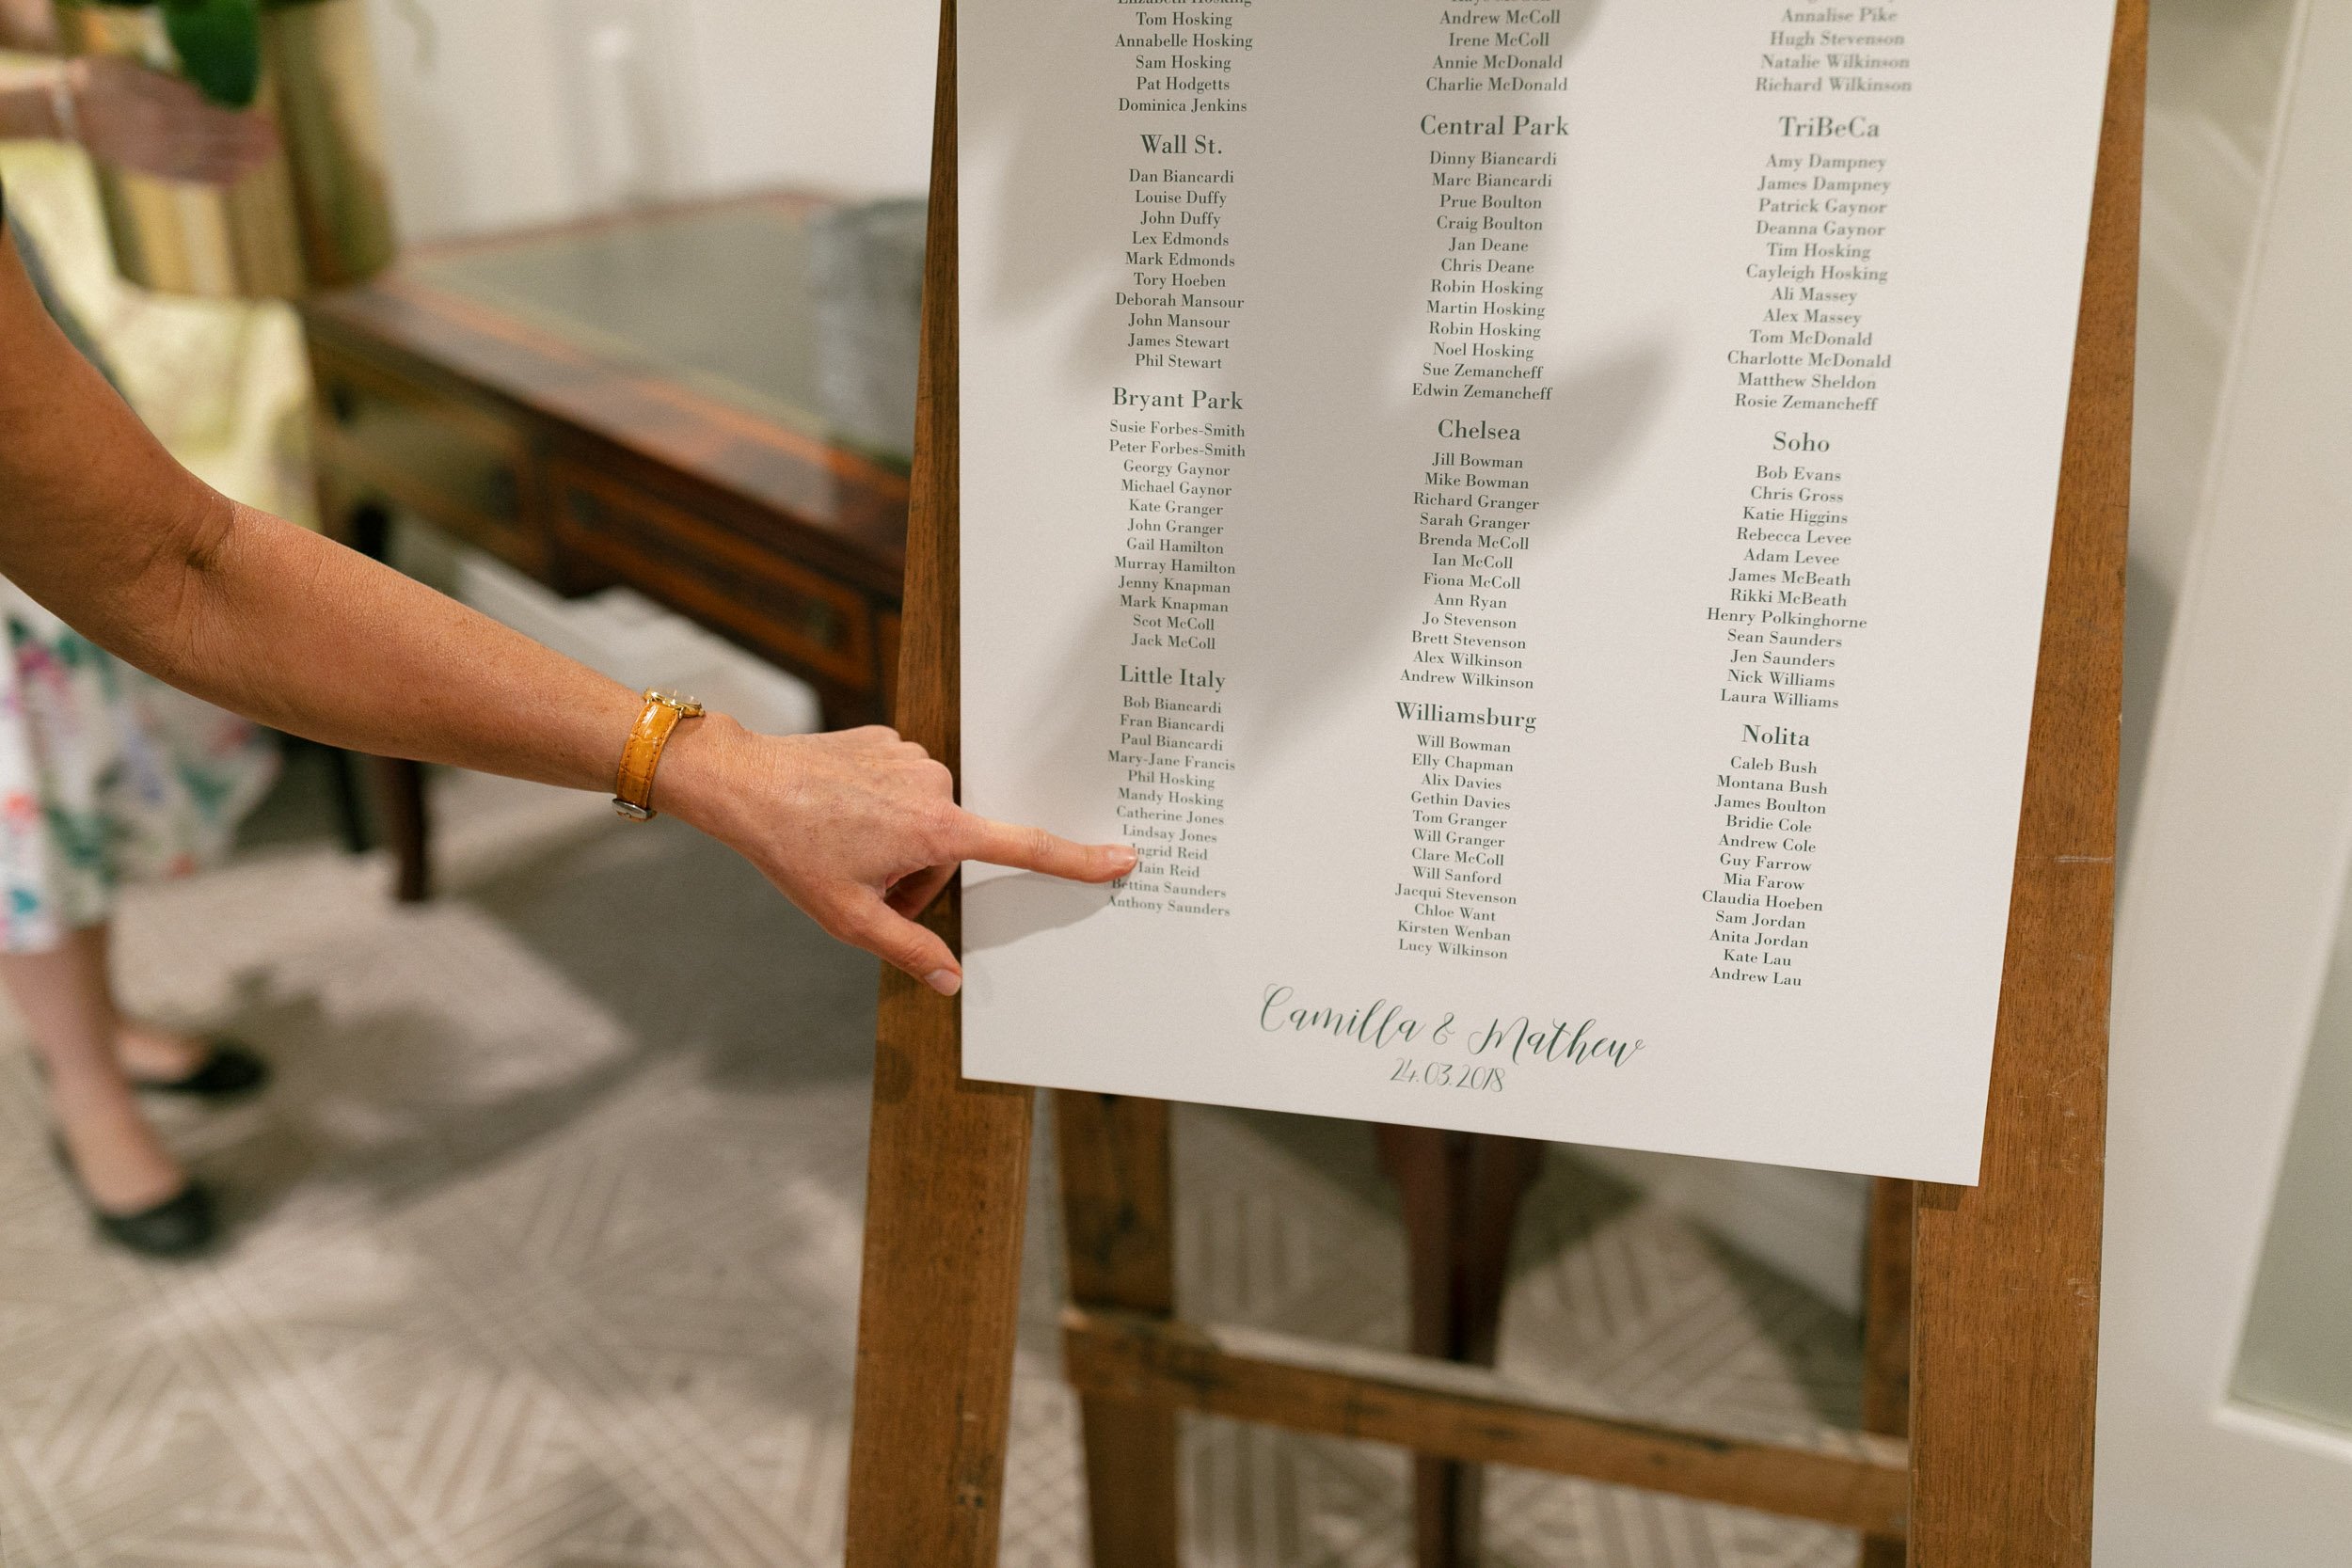 Elizabeth Hosking
Tom Hosking
Annabelle Hosking
Sam Hosking
Pat Hodgetts
Dominica Jenkins
Wall St.
Dan Biancardi
Louise Duffy
John Duffy
Lex Edmonds
Mark Edmonds
Tory Hoeben
Deborah Mansour
John Mansour
James Stewart
Phil Stewart
Bryant Park
Susie Forbes-Smith
Peter Forbes-Smith
Georgy Gaynor
Michael Gaynor
Kate Granger
John Granger
Gail Hamilton
Murray Hamilton
Jenny Knapman
Mark Knapman
Scot McColl
Jack McColl
Little Italy
Bob Biancardi
Fran Biancardi
Paul Biancardi
Mary-Jane Francis
Phil Hosking
Mandy Hosking
Catherine Jones
Lindsay Jones
Ingrid Reid
Iain Reid
Bettina Saunders
Anthony Saunders
Andrew McColl
Irene McColl
Annie McDonald
Charlie McDonald
Central Park
Dinny Biancardi
Marc Biancardi
Prue Boulton
Craig Boulton
Jan Deane
Chris Deane
Robin Hosking
Martin Hosking
Robin Hosking
Noel Hosking
Sue Zemancheff
Edwin Zemancheff
Chelsea
Jill Bowman
Mike Bowman
Richard Granger
Sarah Granger
Brenda McColl
Ian McColl
Fiona McColl
Ann Ryan
Jo Stevenson
Brett Stevenson
Alex Wilkinson
Andrew Wilkinson
Williamsburg
Will Bowman
Elly Chapman
Alix Davies
Gethin Davies
Tom Granger
Will Granger
Clare McColl
Will Sanford
Jacqui Stevenson
Chloe Want
Kirsten Wenban
Lucy Wilkinson
Annalise Pike
Hugh Stevenson
Natalie Wilkinson
Richard Wilkinson
TriBeCa
Amy Dampney
James Dampney
Patrick Gaynor
Deanna Gaynor
Tim Hosking
Cayleigh Hosking
Ali Massey
Alex Massey
Tom McDonald
Charlotte McDonald
Matthew Sheldon
Rosie Zemancheff
Soho
Bob Evans
Chris Gross
Katie Higgins
Rebecca Levee
Adam Levee
James McBeath
Rikki McBeath
Henry Polkinghorne
Sean Saunders
Jen Saunders
Nick Williams
Laura Williams
Nolita
Caleb Bush
Montana Bush
James Boulton
Bridie Cole
Andrew Cole
Guy Farrow
Mia Farow
Claudia Hoeben
Sam Jordan
Anita Jordan
Kate Lau
Andrew Lau
Camilla & Mathew
24.03.2018